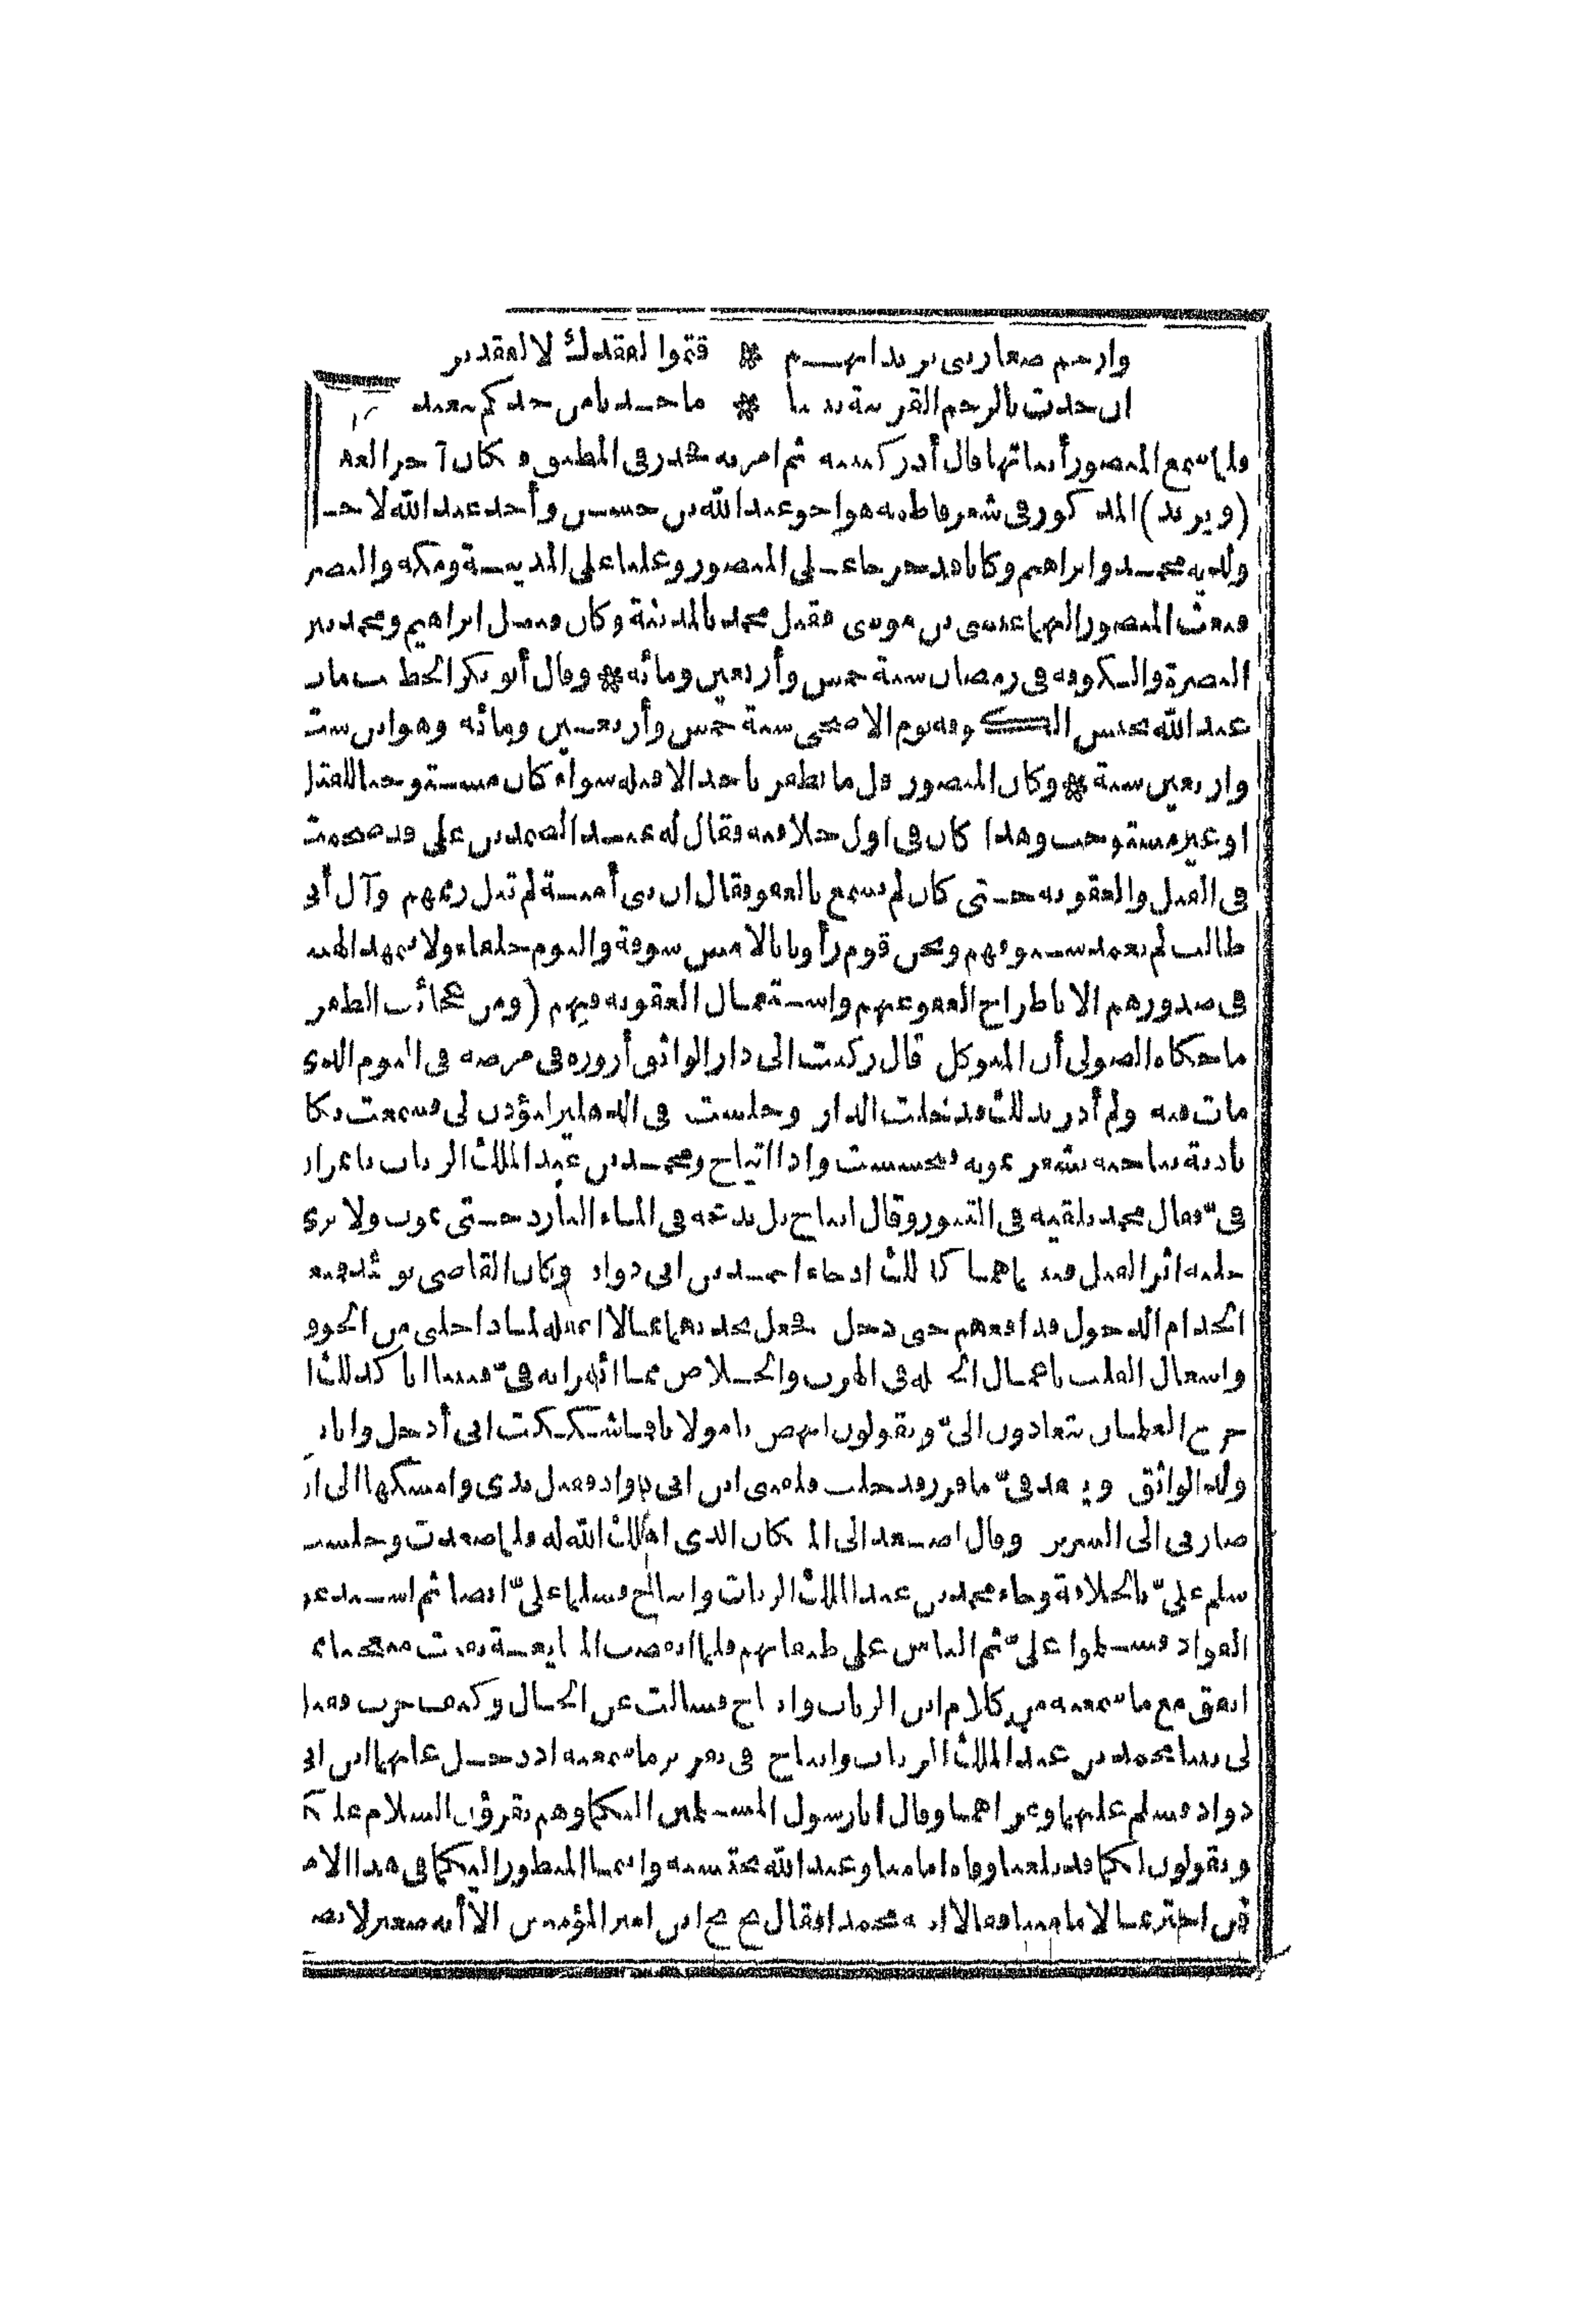 وارحم صغار بني يزيد انهم ❊ يتموا لفقدك لا لفقد يز
ان جدت بالرحم القريبة بيننا ❊ ما جدنا من جدكم ببعيد
فلما سمع المنصور أبياتها قال أذكرتنيه ثم امر به فحدر في المطبق فكان آخر العهد
(ويزيد) المذكور في شعر فاطمه هو اخو عبد الله بن حسن وأخذ عبد الله لاجـ
ولديه محمد وابراهيم وكانا قد خرجا على المنصور وغلبا على المدينة ومكه والبصر
فبعث المنصور اليهما عيسى بن موسى فقتل محمد بالمدينة وكان قتل ابراهيم ومحمد بين
البصرة والكوفه في رمضان سنة خمس وأربعين ومائه ❊ وقال أبو بكر الخطيب مات
عبد الله بحبس الكوفه يوم الاضحى سنة خمس وأربعين ومائه وهو ابن ست
واربعين سنة ❊ وكان المنصور قل ما يظفر باحد الا قتله سواء كان مستوجبا للقتل
او غير مستوجب وهذا كان في اول خلافته فقال له عبد الصمد بن علي قد هجمت
في القتل والعقوبه حتى كان لم تسمع بالعفو فقال ان بني أمية لم تبل رممهم وآل أبي
طالب لم تغمد سيوفهم ونحن قوم رأونا بالامس سوقة واليوم خلفاء ولا تتمهد الهيبـ
في صدورهم الا باطراح العفو عنهم واستعمال العقوبه فيهم (ومن عجائب الظفر
ما حكاه الصولى أن المتوكل قال ركبت الى دار الواثق أزوره في مرضه في اليوم الذي
مات فيه ولم أدر بذلك فدخلت الدار وجلست في الدهليز ليؤذن لي فسمعت بكا
نادبة بناحيه تشعر بموته فتحسست واذا ايتاح ومحمد بن عبد الملك الزيات يأتمران
في فقال محمد نلقيه في التنور وقال ايتاح بل ندعه في الماء البارد حتى يموت ولا يرى
عليه اثر القتل فبينما هما كذلك اذ جاء احمد بن ابي دواد وكان القاضي يومئذ فمنعه
الخدام الدخول فدافعهم حتى دخل فجعل يحدثهما بما لا اعقله لما داخلني من الخوف
واشتغال القلب باعمال الحيله في الهرب والخلاص مما ائتمرا به في فبينما انا كذلك ا
خرج الغلمان يتعادون الىّ ويقولون انهض يا مولانا فما شككت اني أدخل وابا
ولد الواثق وينفذ فيّ ما قرر فدخلت فلقيني ابن ابي دواد فقبل يدي وامسكها الى ان
صار بي الى السرير وقال اصعد الى المكان الذي اهلك الله له فلما صعدت وجلست
سلم عليّ بالخلافة وجاء محمد بن عبد الملك الزيات وايتاح فسلما عليّ ايضا ثم استدعى
القواد فسلموا عليّ ثم الناس على طبقاتهم فلما انقضت المبايعة بقيت متعجبا مما
اتفق مع ما سمعته من كلام ابن الزيات وايتاح فسالت عن الحال وكيف جرت فقيل
لي بينا محمد بن عبد الملك الزيات وايتاح في تقرير ما سمعته اذ دخل عليهما ابن ابي
دواد فسلم عليهما وعزاهما وقال انا رسول المسلمين اليكما وهم يقرؤن السلام عليكما
ويقولون لكما قد بلغنا وفاه امامنا وعند الله نحتسبه وانما المنظور اليكما في هذا الامـ
فمن اخترتما لامامتنا فقالا ابنه محمدا فقال بخ بخ ابن امير المؤمنين الا أنه صغير لا يصـ